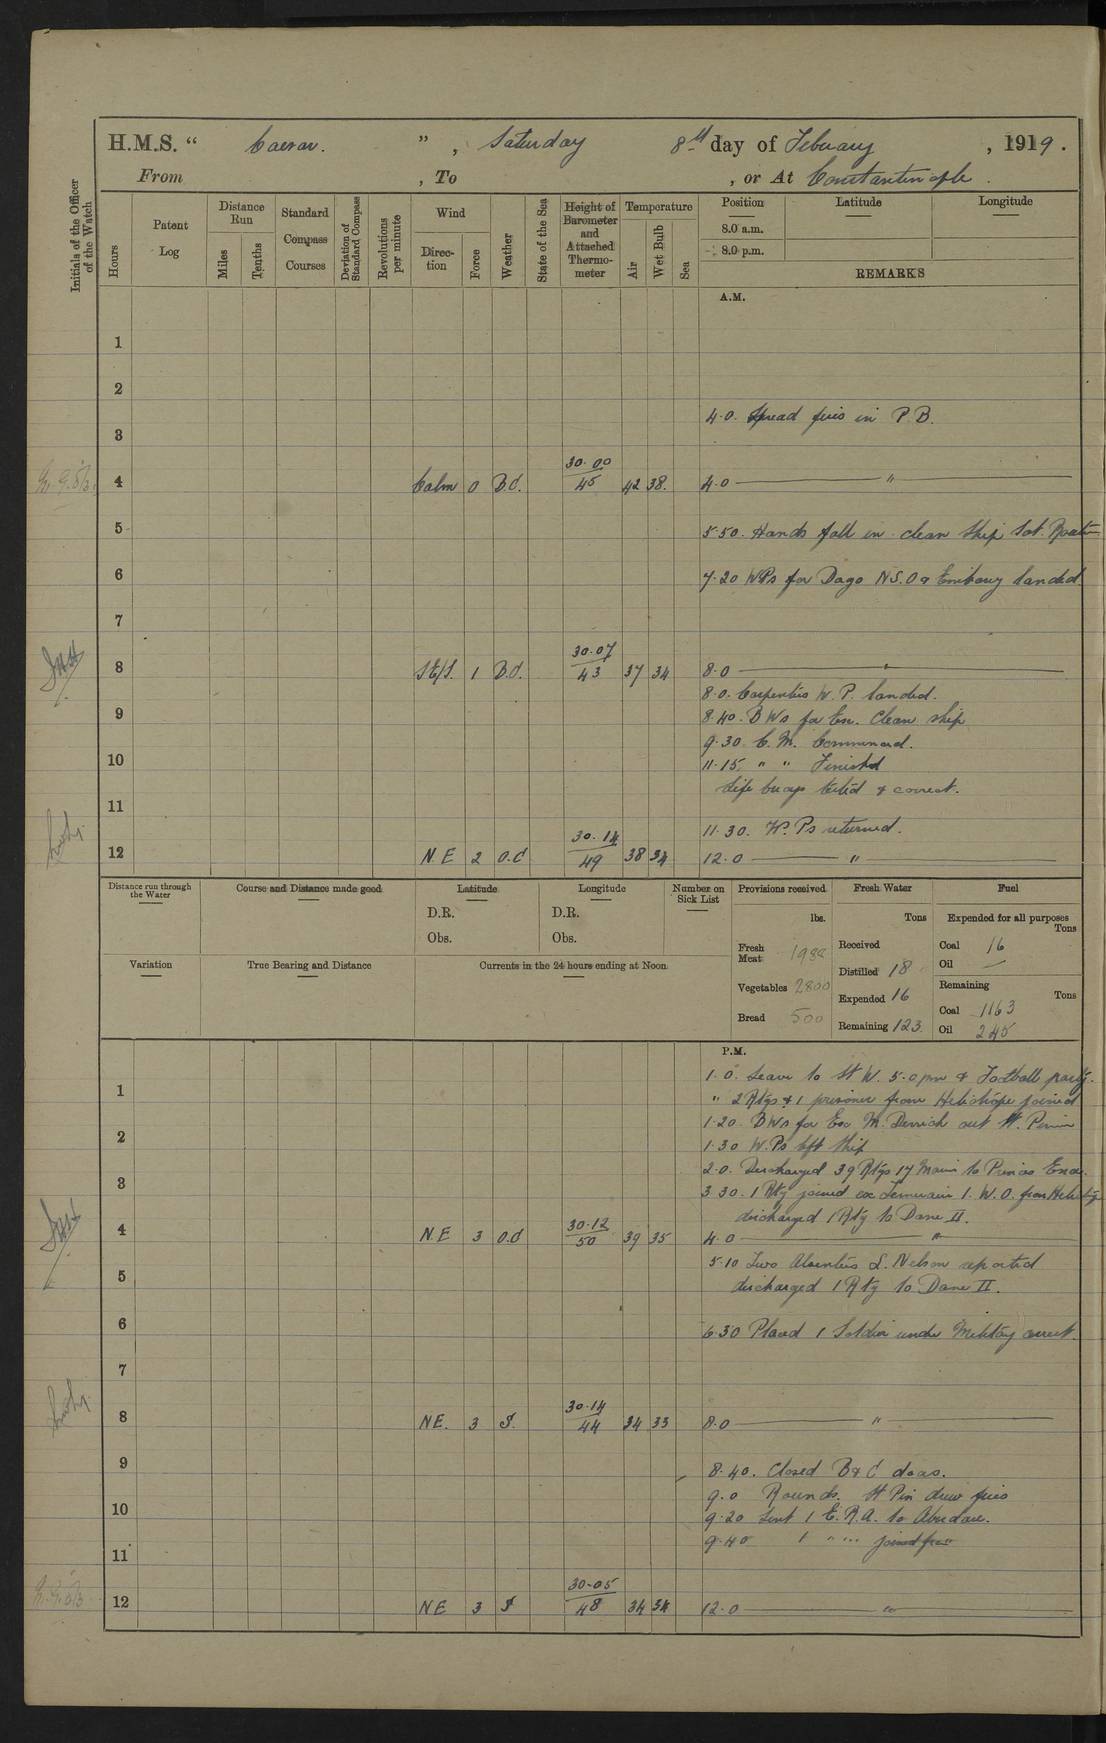 H.M.S. " Caesar. ", Saturday 8th day of February, 1919.
From , To , or At Constantinople.
Initials of the Officer of the Watch
Hours
Patent Log
Distance Run
Miles
Tenths
Standard Compass Courses
Deviation of Standard Compass
Revolutions per minute
Wind
Direction
Force
Weather
State of the Sea
Height of Barometer and Attached Thermometer
Temperature
Air
Wet Bulb
Sea
Position
Latitude
Longitude
8.0 a.m.
8.0 p.m.
REMARKS
A.M.
1
2
4.0. Spread fires in P.B.
3
4 Calm 0 B.C. 30.00 45 42 38. 4.0 "
5 5.50. Hands fall in clean ship Sat. Routine
6 7.20 WPs for Dago N.S.O & Embassy landed.
7
8 SE/S. 1 B.C. 30.07 43 37 34 8.0 "
8.0. Carpenters W.P. landed.
9 8.40. BWs for En. Clean ship
9.30 C.M. Commenced.
10 11.15. " " Finished
Life buoys tested & correct.
11
11.30. W.Ps returned.
12 N.E 2 O.C 30.14 49 38 34 12.0 "
Distance run through the Water
Course and Distance made good
Latitude
D.R.
Obs.
Longitude
D.R.
Obs.
Number on Sick List
Provisions received
lbs.
Fresh Meat 1988
Vegetables 2800
Bread 500
Fresh Water
Tons
Received
Distilled 18
Expended 16
Remaining 123
Fuel
Expended for all purposes
Tons
Coal 16
Oil —
Remaining
Tons
Coal 1163
Oil 245
Variation
True Bearing and Distance
Currents in the 24 hours ending at Noon.
P.M.
1 1.0. Leave to St W. 5.0 pm & Football party.
" 2 Rtgs & 1 prisoner from Heliotrope joined
1.20. BWs for Exc M. Derrick out St.
2 1.30 W.Ps left ship
2.0. Discharged 39 Rtgs 17 to Princes Ena.
3 3.30. 1 Rtg joined ex Temeraire 1. W.O. from
discharged 1 Rtg to Dane II.
4 N.E 3 O.C 30.12 50 39 35 4.0 "
5.10 Two Absentees L. Nelson reported
5 discharged 1 Rtg to Dane II.
6 6.30 Placed 1 Soldier under Military arrest.
7
8 N.E. 3 S. 30.14 44 34 33 8.0 "
9 8.40. Closed B & C doors.
9.0 Rounds. St Pin drew fires
10 9.20 Sent 1 E.R.A. to
9.40 1 " " joined from "
11
12 NE 3 S 30.05 48 34 34 12.0 "